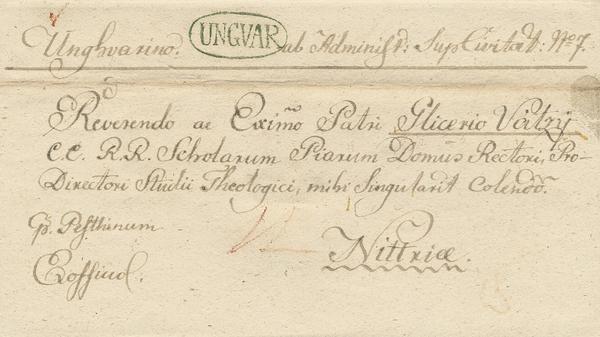 Unghvarino. UNGVAR ab Administ: Sup Civitat: No 7.
Reverendo ac Eximo Patri Glicerio Vátzy
C.C. R.R. Scholarum Piarum Domus Rectori, Pro-
Directori Studii Theologici, mihi Singularit Colendo.
p. Pesthinum
Nittriæ.
Exoffiuol.